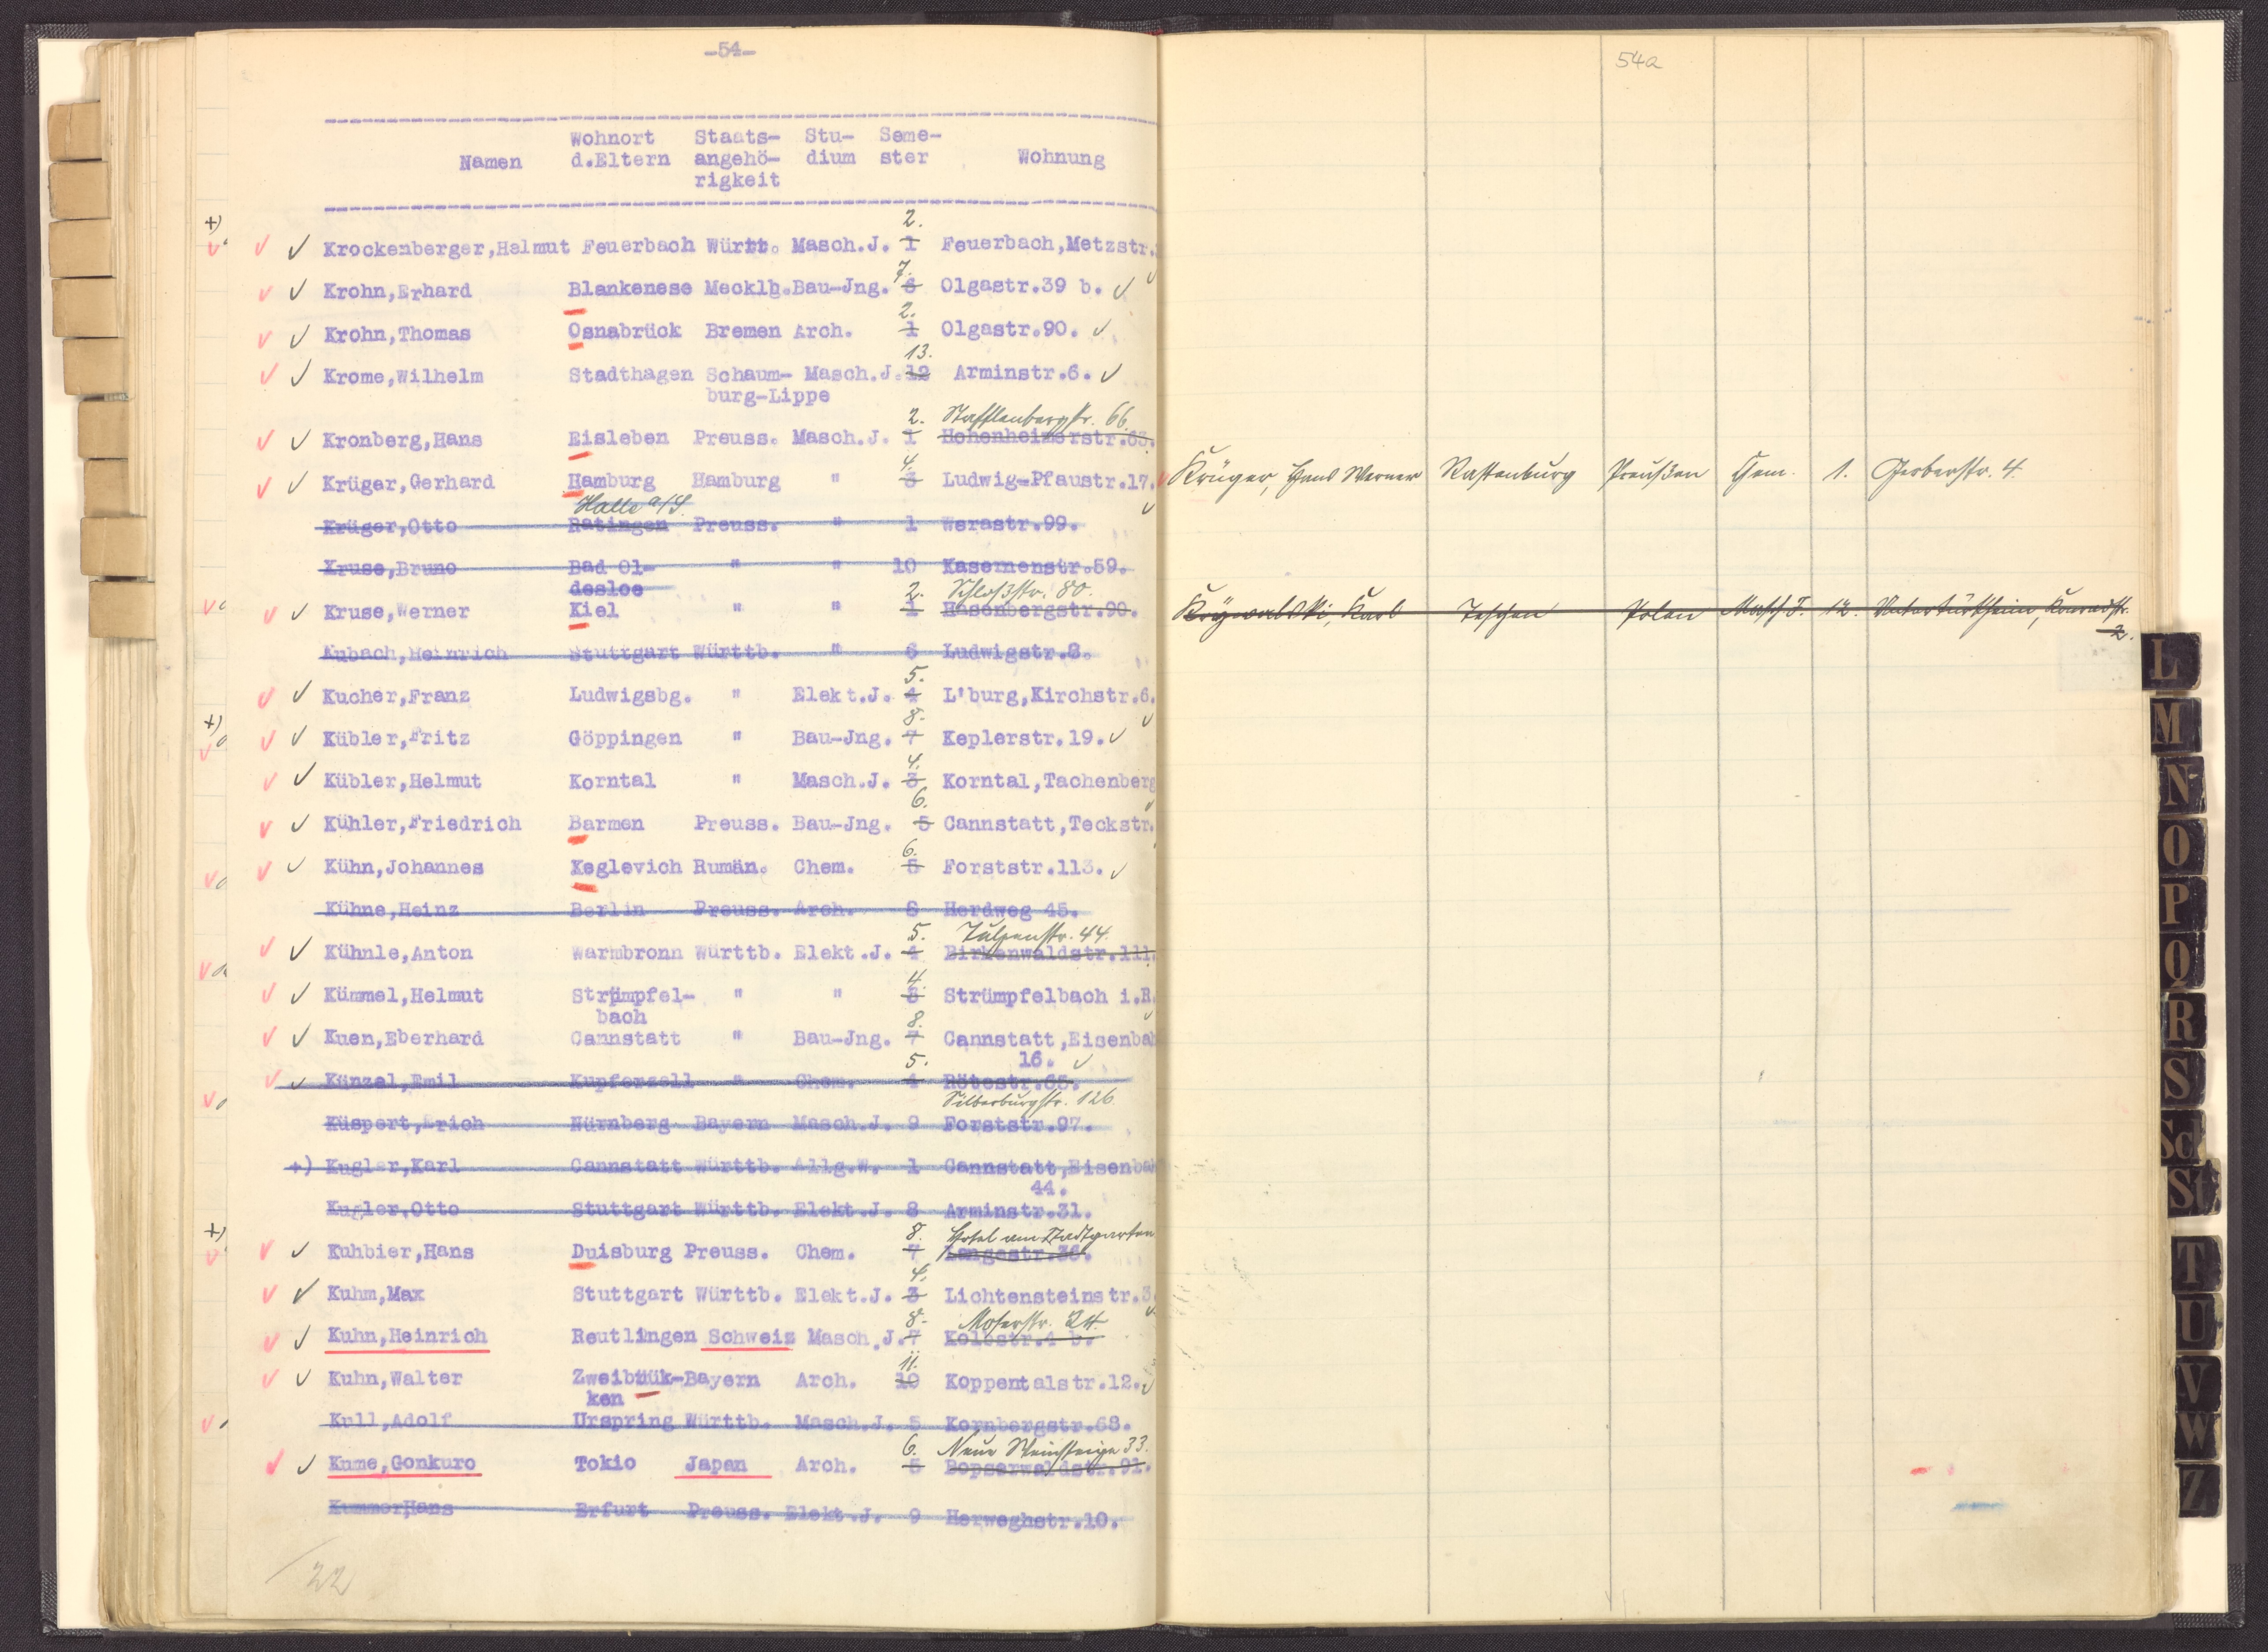 -54-
Wohnort Staats- Stu- Seme-
Namen d.Eltern angehö- dium ster Wohnung
rigkeit
+) 2.
Krockenberger,Helmut Feuerbach Württ. Masch.J. 1 Feuerbach,Metzstr.
7.
Krohn,Erhard Blankenese Mecklb.Bau-Jng. 6 Olgastr.39 b.
2.
Krohn,Thomas Osnabrück Bremen Arch. 1 Olgastr.90.
13.
Krome,Wilhelm Stadthagen Schaum- Masch.J.12 Arminstr.6.
burg-Lippe
2. Stafflenbergstr. 66.
Kronberg,Hans Eisleben Preuss. Masch.J. 1 Hohenheimerstr.63.
4.
Krüger,Gerhard Hamburg Hamburg " 3 Ludwig-Pfaustr.17.
Halle a/S.
Krüger,Otto Ratingen Preuss. " 1 Werastr.99.
Kruse,Bruno Bad Ol- " " 10 Kasernenstr.59.
desloe 2. Schloßstr. 80.
Kruse,Werner Kiel " " 1 Hasenbergstr.90.
Kubach,Heinrich Stuttgart Württb. " 6 Ludwigstr.8.
5.
Kucher,Franz Ludwigsbg. " Elekt.J. 4 L'burg,Kirchstr.6.
+) 8.
Kübler,Fritz Göppingen " Bau-Jng. 7 Keplerstr.19.
4.
Kübler,Helmut Korntal " Masch.J. 3 Korntal,Tachenberg
6.
Kühler,Friedrich Barmen Preuss. Bau-Jng. 5 Cannstatt,Teckstr.
6.
Kühn,Johannes Keglevich Rumän. Chem. 5 Forststr.113.
Kühne,Heinz Berlin Preuss. Arch. 6 Herdweg 45.
5. Tulpenstr. 44.
Kühnle,Anton Warmbronn Württb. Elekt.J. 4 Birkenwaldstr.111.
4.
Kümmel,Helmut Strümpfel- " " 3 Strümpfelbach i.R.
bach 8.
Kuen,Eberhard Cannstatt " Bau-Jng. 7 Cannstatt,Eisenbah
5. 16.
Künzel,Emil Kupferzell " Chem. 4 Rötestr.65.
Silberburgstr. 126.
Küspert,Erich Nürnberg Bayern Masch.J. 9 Forststr.97.
+) Kugler,Karl Cannstatt Württb. Allg.W. 1 Cannstatt,Eisenbah
44.
Kugler,Otto Stuttgart Württb. Elekt.J. 8 Arminstr.31.
+) 8. Hotel am Stadtgarten
Kuhbier,Hans Duisburg Preuss. Chem. 7 Langestr.36.
4.
Kuhm,Max Stuttgart Württb. Elekt.J. 3 Lichtensteinstr.3
8. Moserstr. 24.
Kuhn,Heinrich Reutlingen Schweiz Masch.J.7 Kolbstr.4 b.
11.
Kuhn,Walter Zweibrük-Bayern Arch. 10 Koppentalstr.12.
ken
Kull,Adolf Urspring Württb. Masch.J. 5 Kornbergstr.68.
6. Neue Weinsteige 33.
Kume,Gonkuro Tokio Japan Arch. 5 Bopserwaldstr.91.
Kummer,Hans Erfurt Preuss. Elekt.J. 9 Herweghstr.10.
22
54a
Krüger, Hans Werner Rastenburg Preußen Chem. 1. Gerberstr. 4.
Krzywalski, Karl Teschen Polen Masch J. 12. Untertürkheim, Konradstr.
2.
L
M
N
O
P
Q
R
S
Sch
St
T
U
V
W
Z